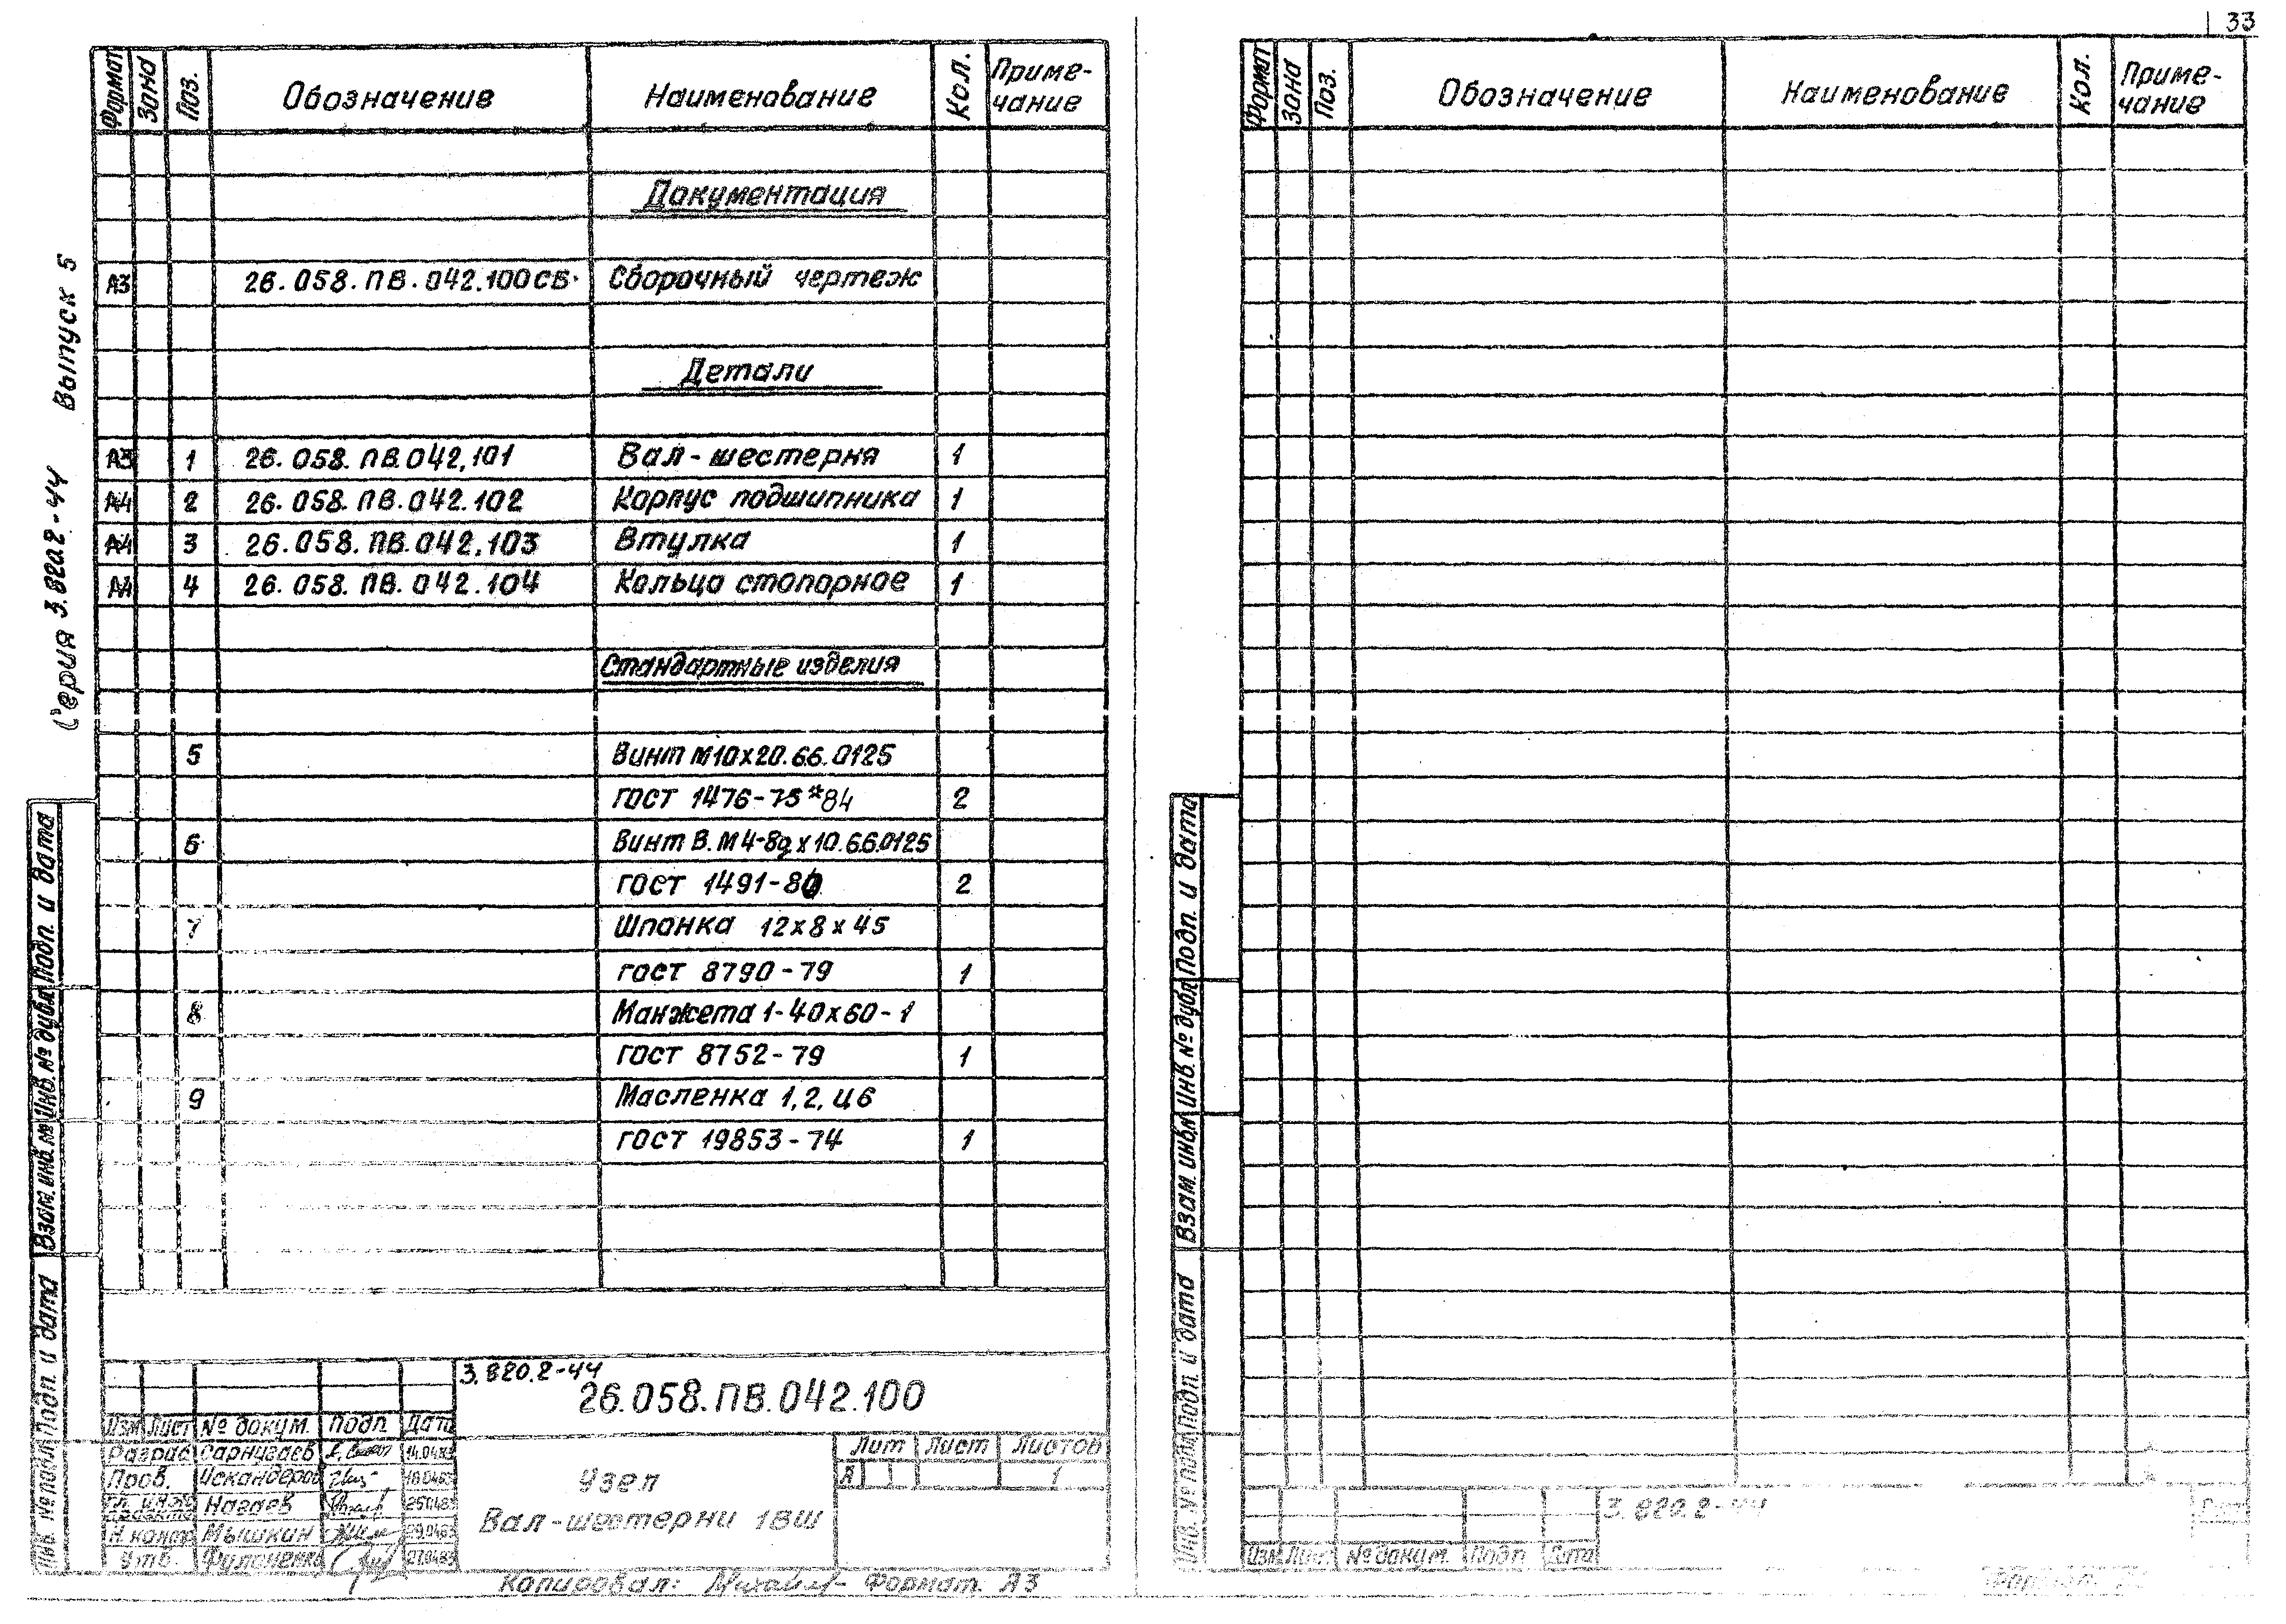 33
Формат Зона Поз. Обозначение Наименование Кол. Приме-
чание
Документация
А3 26.058.ПВ.042.100СБ Сборочный чертеж
Детали
А3 1 26.058.ПВ.042.101 Вал-шестерня 1
А4 2 26.058.ПВ.042.102 Корпус подшипника 1
А4 3 26.058.ПВ.042.103 Втулка 1
А4 4 26.058.ПВ.042.104 Кольцо стопорное 1
Стандартные изделия
5 Винт М10х20.66.0125
ГОСТ 1476-75*84 2
6 Винт В.М4-8gх10.66.0125
ГОСТ 1491-80 2
7 Шпонка 12х8х45
ГОСТ 8790-79 1
8 Манжета 1-40х60-1
ГОСТ 8752-79 1
9 Масленка 1,2.Ц6
ГОСТ 19853-74 1
Серия 3.820.2-44 Выпуск 5
Подп. и дата
Инв. № дубл.
Взам. инв. №
Подп. и дата
Инв. № подл.
3.820.2-44
26.058.ПВ.042.100
Изм Лист № докум. Подп Дата
Разраб Сарнигаев 14.04.83
Пров. Искандеров
Гл. инж. проекта Нагаев 25.04.83
Н. контр Мышкин 29.04.83
Утв.
Узел
Вал-шестерни 1ВШ
Лит Лист Листов
А 1 1
Копировал: Формат А3
Формат Зона Поз. Обозначение Наименование Кол. Приме-
чание
Подп. и дата
Инв. № дубл
Взам. инв. №
Подп. и дата
Инв. № подл
3.820.2-44
Изм Лист № докум. Подп Дата
Лист